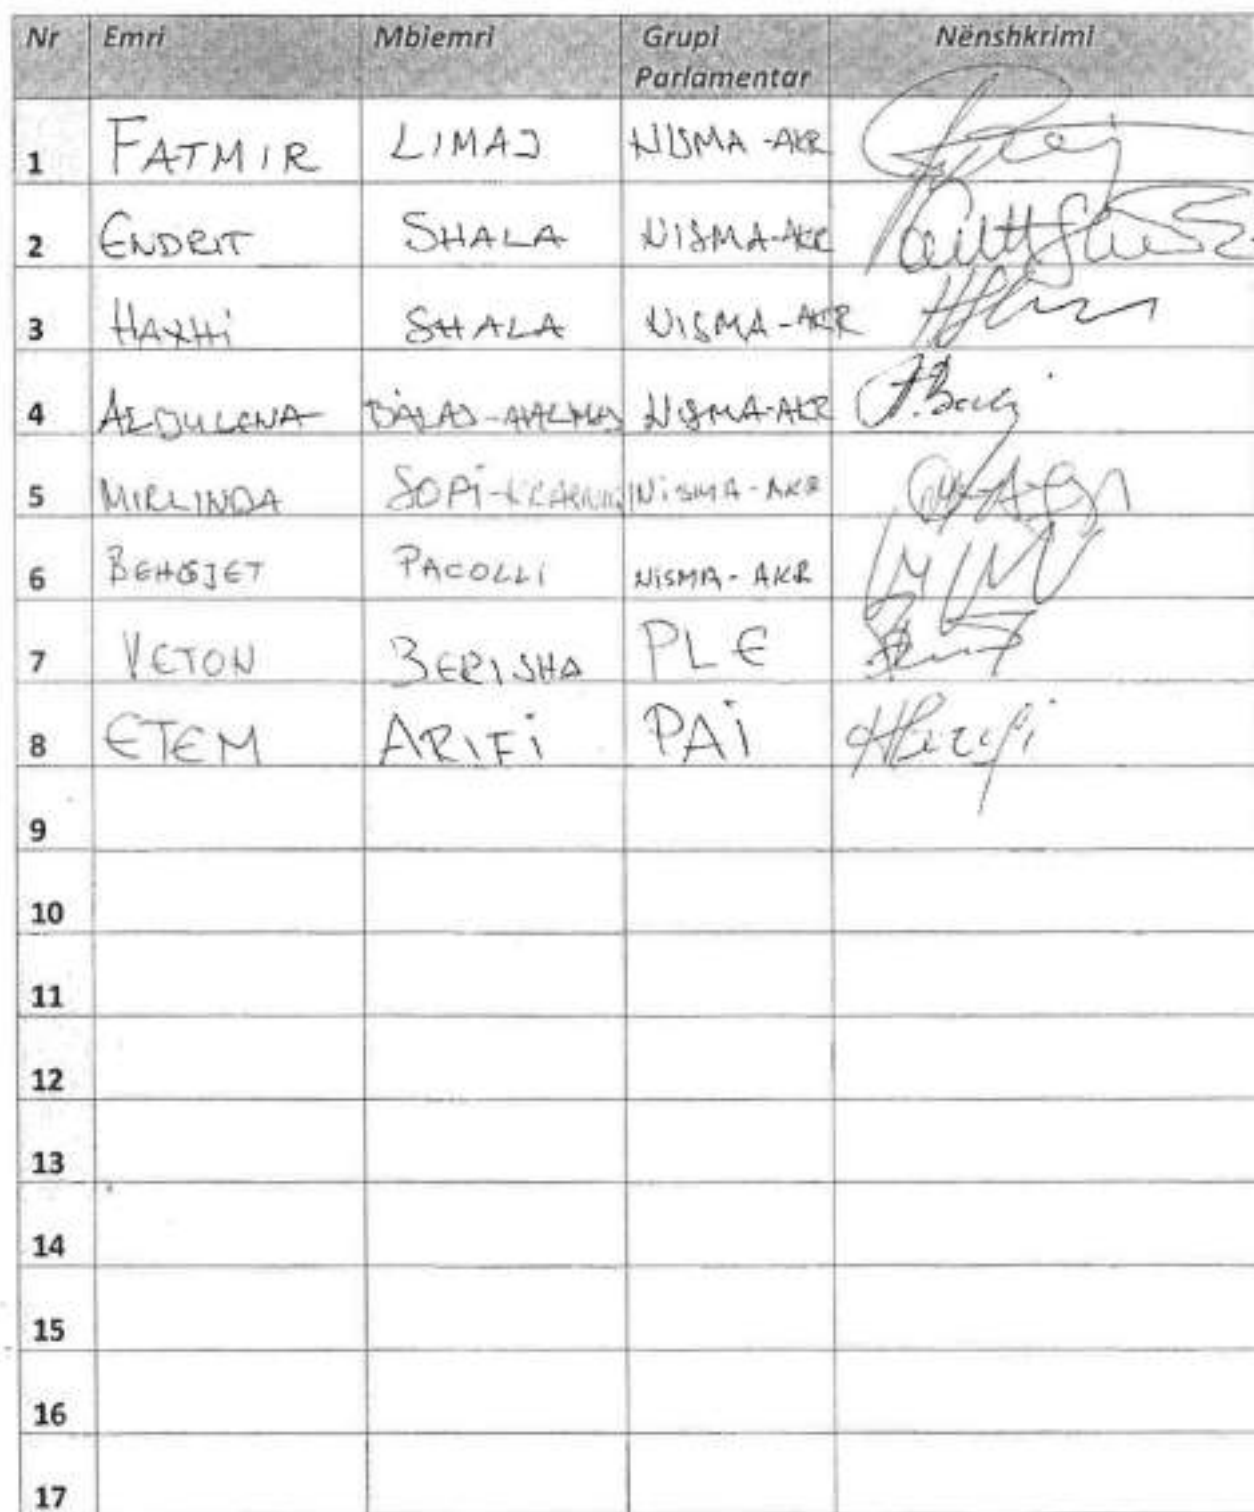 Nr Emri Mbiemri Grupi Parlamentar Nënshkrimi
1 FATMIR LIMAJ NISMA-AKR
2 ENDRIT SHALA NISMA-AKR
3 HAXHi SHALA NISMA-AKR
4 NISMA-AKR
5 MIRLINDA SOPi- NiSMA-AKR
6 BEHGJET PACOLLi NiSMA-AKR
7 VETON BERISHA PLE
8 ETEM ARIFi PAi
9
10
11
12
13
14
15
16
17